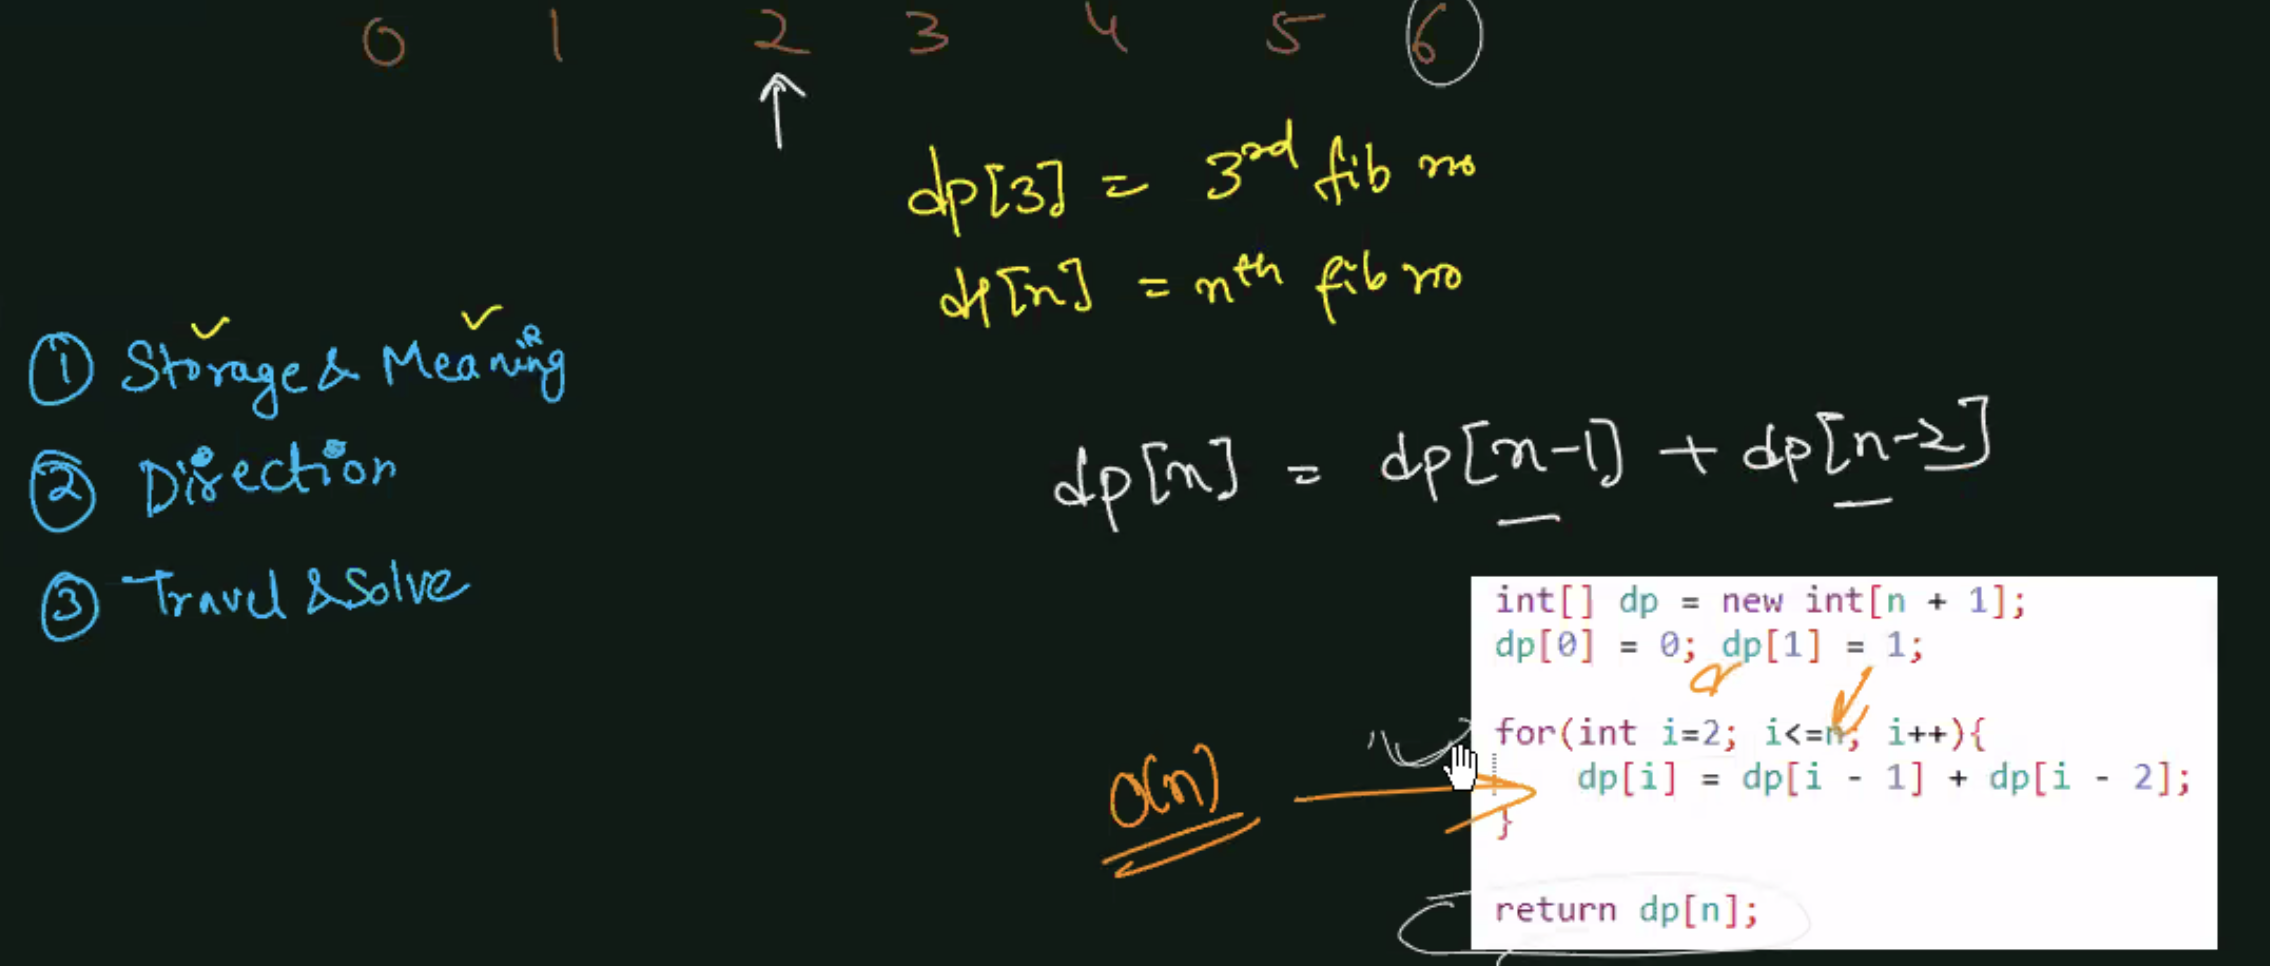 0 1 2 3 4 5 6
dp[3] = 3rd fib no
dp[n] = nth fib no
① Storage & Meaning
② Direction
③ Travel & Solve
dp[n] = dp[n-1] + dp[n-2]
int[] dp = new int[n + 1];
dp[0] = 0; dp[1] = 1;
for(int i=2; i<=n; i++){
dp[i] = dp[i - 1] + dp[i - 2];
}
O(n)
return dp[n];